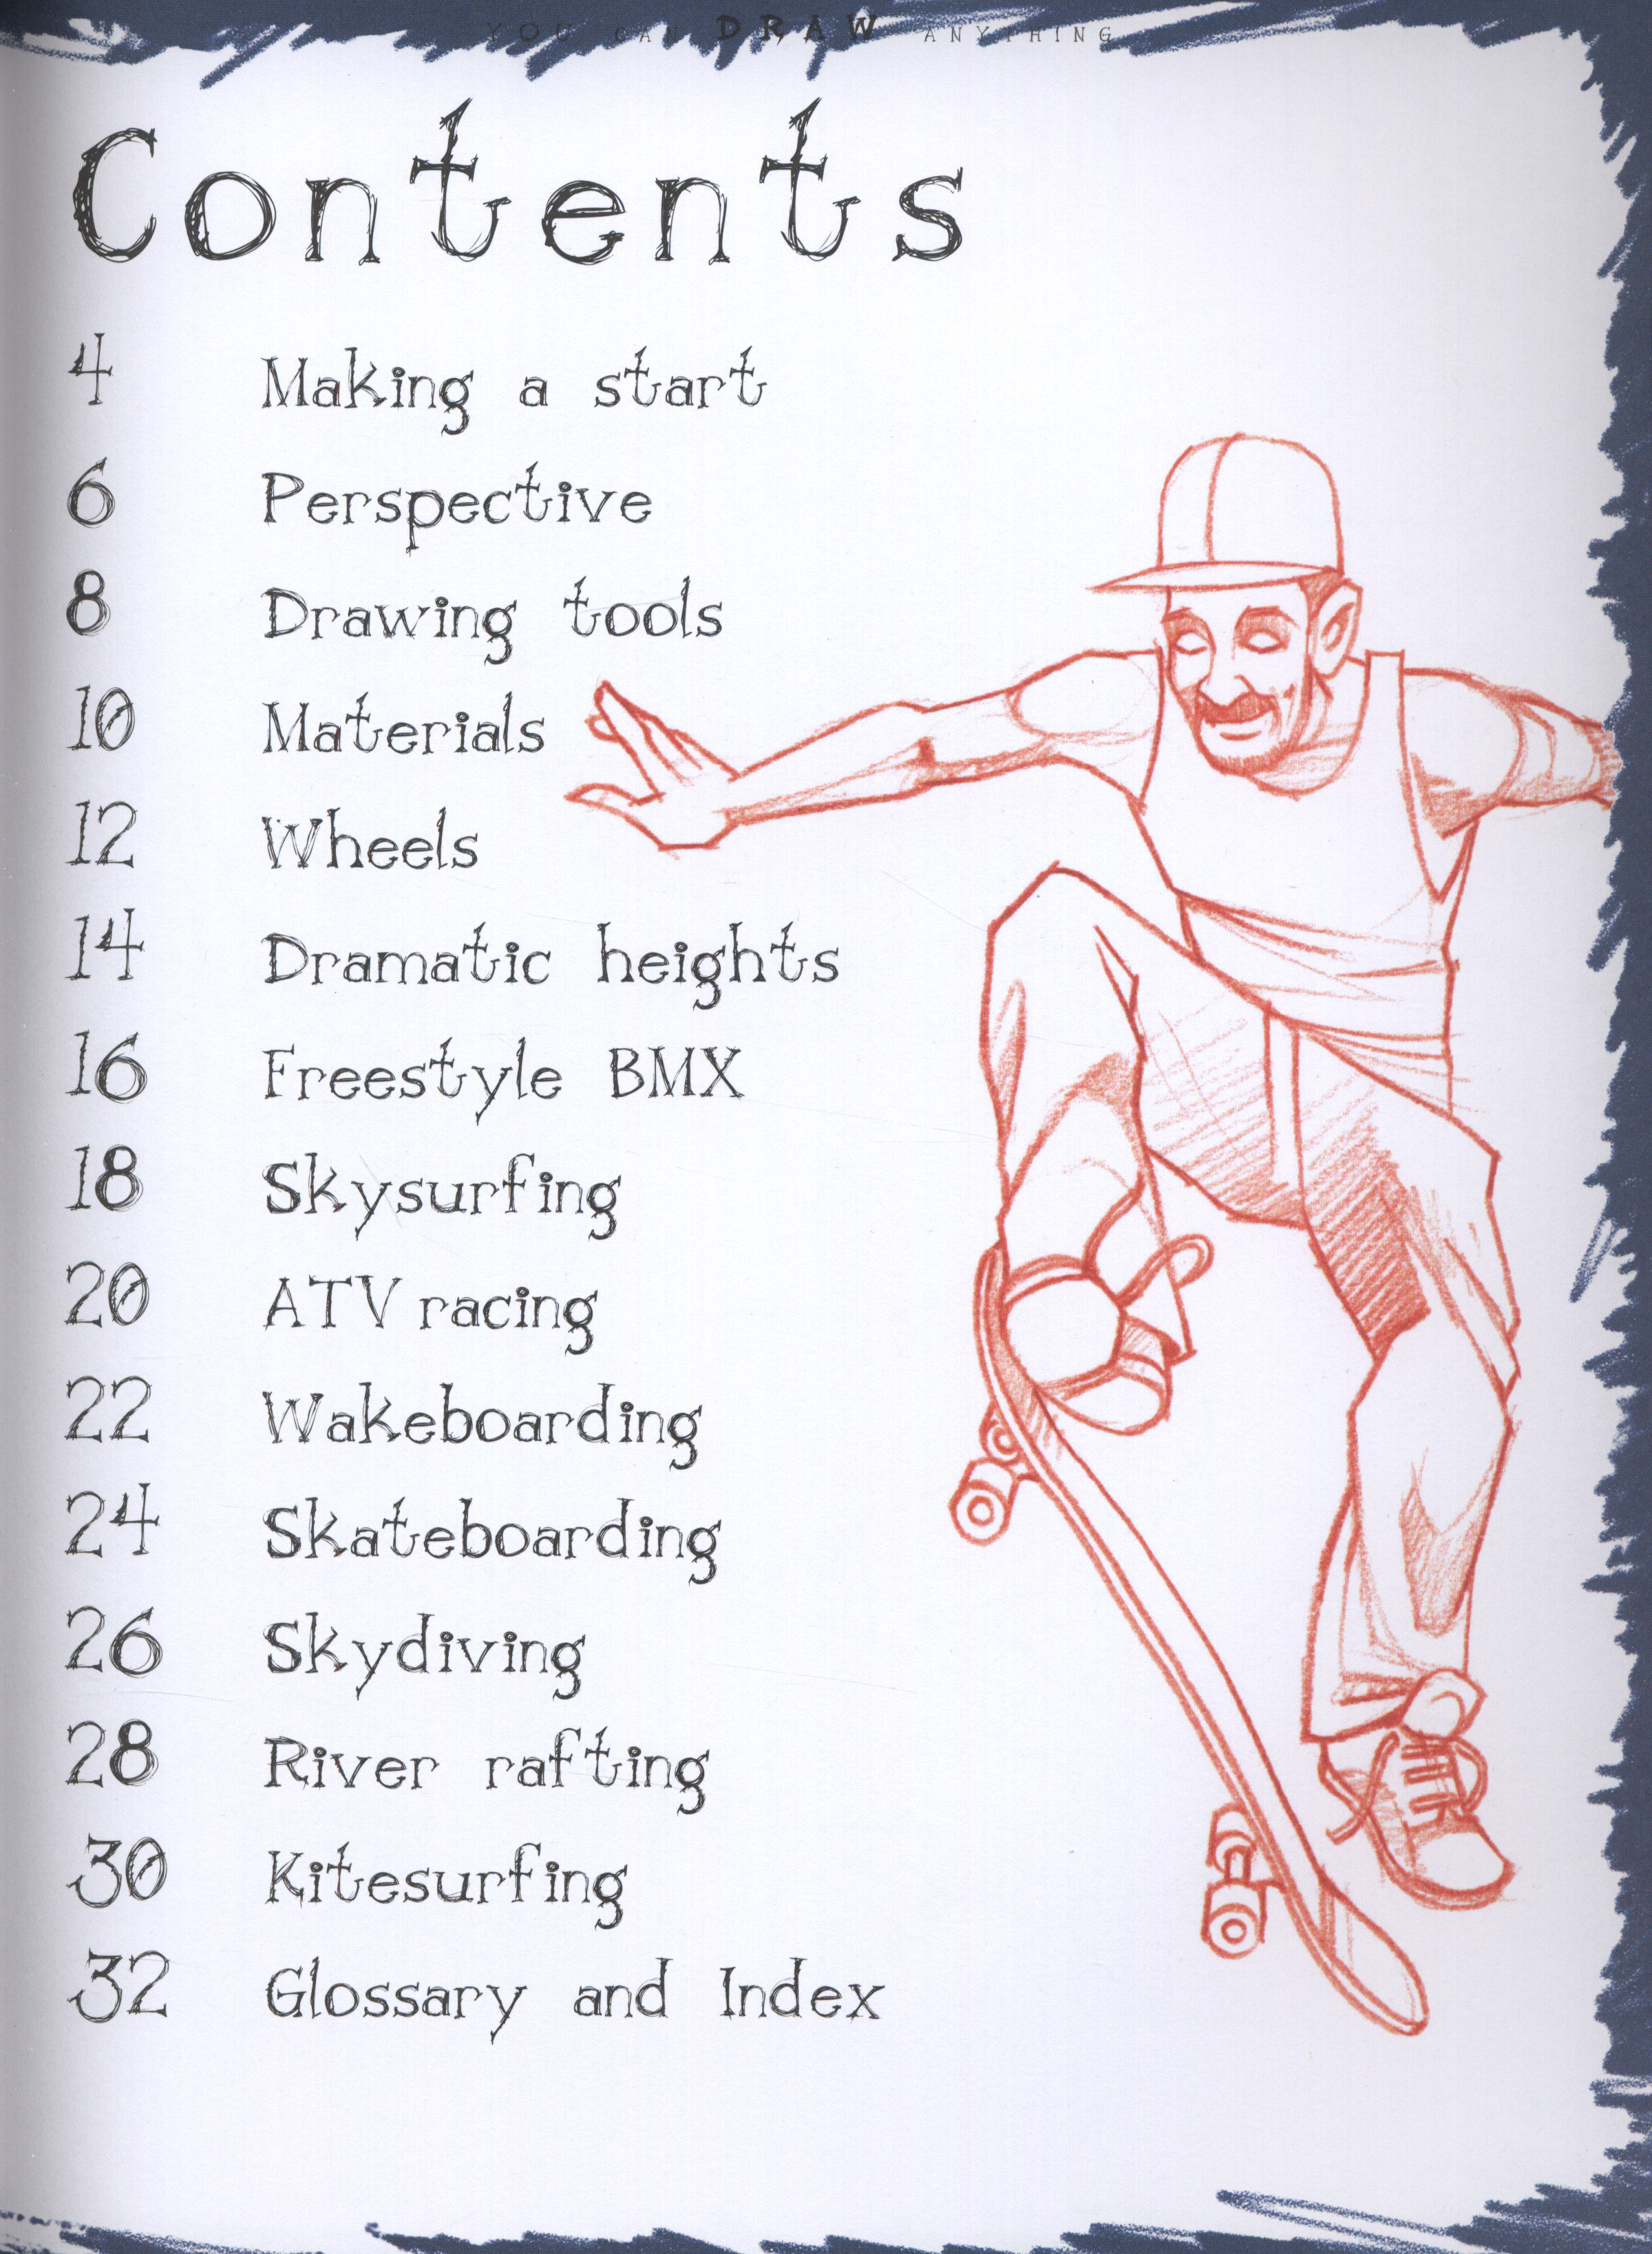 YOU CAN DRAW ANYTHING
Contents
4 Making a start
6 Perspective
8 Drawing tools
10 Materials
12 Wheels
14 Dramatic heights
16 Freestyle BMX
18 Skysurfing
20 ATV racing
22 Wakeboarding
24 Skateboarding
26 Skydiving
28 River rafting
30 Kitesurfing
32 Glossary and Index